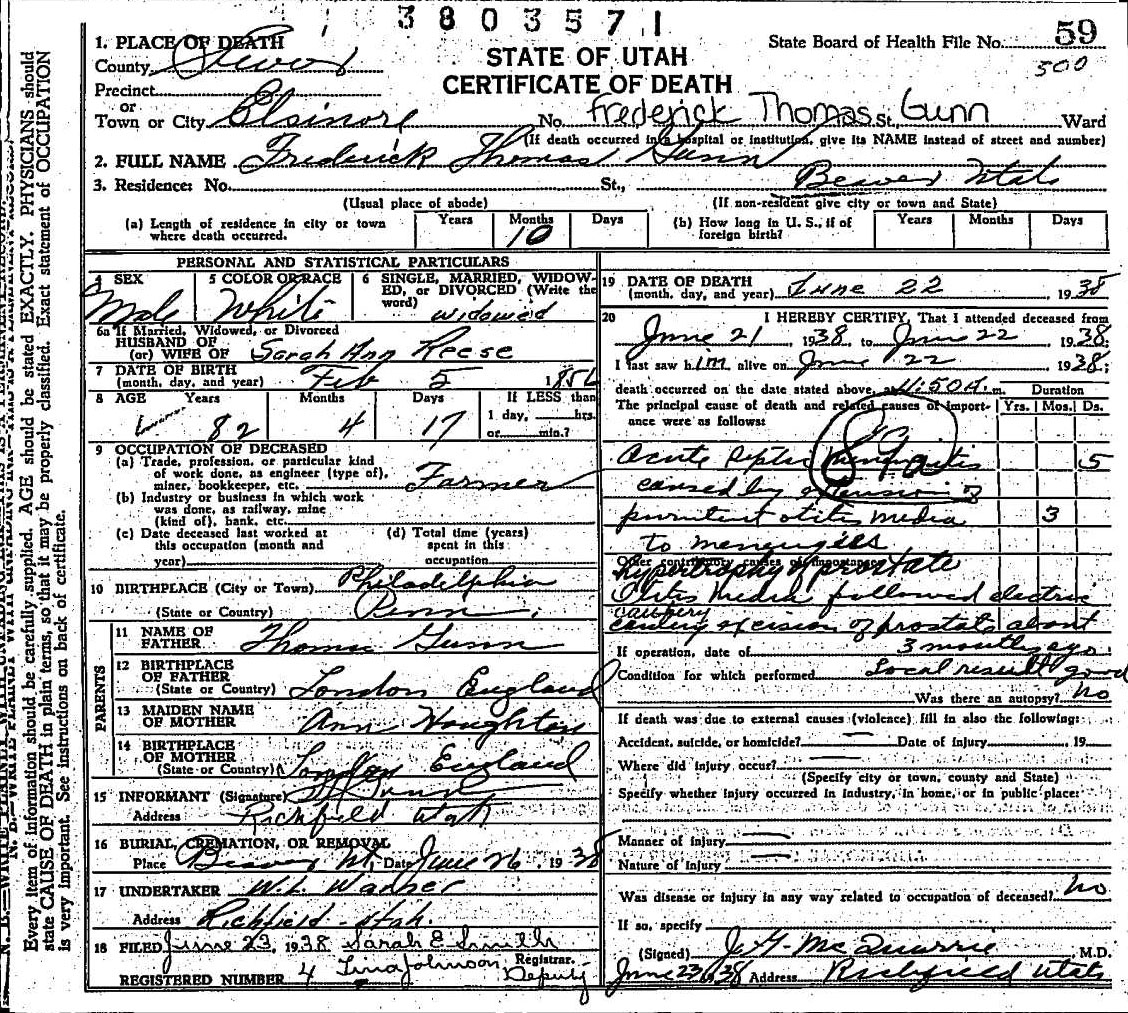 3803571
1. PLACE OF DEATH
STATE OF UTAH
CERTIFICATE OF DEATH
State Board of Health File No. 59
500
County Sevier
Precinct
or
Town or City Elsinore No. Frederick Thomas St. Gunn Ward
(If death occurred in a hospital or institution, give its NAME instead of street and number)
2. FULL NAME Frederick Thomas Gunn
3. Residence: No. St., Beaver Utah
(Usual place of abode) (If non-resident give city or town and State)
(a) Length of residence in city or town where death occurred. Years Months 10 Days
(b) How long in U. S., if of foreign birth? Years Months Days
PERSONAL AND STATISTICAL PARTICULARS
4 SEX Male
5 COLOR OR RACE White
6 SINGLE, MARRIED, WIDOWED, or DIVORCED (Write the word) widowed
6a If Married, Widowed, or Divorced
HUSBAND OF
(or) WIFE OF Sarah Ann Reese
7 DATE OF BIRTH
(month, day, and year) Feb 5 1856
8 AGE Years 82 Months 4 Days 17 If LESS than 1 day, hrs. or min.?
9 OCCUPATION OF DECEASED
(a) Trade, profession, or particular kind
of work done, as engineer (type of),
miner, bookkeeper, etc. Farmer
(b) Industry or business in which work
was done, as railway, mine
(kind of), bank, etc.
(c) Date deceased last worked at
this occupation (month and
year)
(d) Total time (years)
spent in this
occupation
10 BIRTHPLACE (City or Town) Philadelphia
(State or Country) Penn.
PARENTS
11 NAME OF
FATHER Thomas Gunn
12 BIRTHPLACE
OF FATHER
(State or Country) London England
13 MAIDEN NAME
OF MOTHER Ann Houghton
14 BIRTHPLACE
OF MOTHER
(State or Country) London England
15 INFORMANT (Signature) Gunn
Address Richfield Utah
16 BURIAL, CREMATION, OR REMOVAL
Place Beaver Ut. Date June 26, 1938
17 UNDERTAKER W.L.
Address Richfield Utah.
18 FILED June 23, 1938 Sarah E Smith
Registrar.
REGISTERED NUMBER 4 Tina Johnson, Deputy
19 DATE OF DEATH
(month, day, and year) June 22 1938
20 I HEREBY CERTIFY, That I attended deceased from
June 21 1938, to June 22 1938;
I last saw him alive on June 22 1938;
death occurred on the date stated above, at 11:50A. m.
Duration
The principal cause of death and related causes of importance were as follows: Yrs. Mos. Ds.
Acute Septic Meningitis 5
caused by extension of
purulent otitis media 3
to meninges
Other contributory causes of importance:
hypertrophy of prostate
Otitis media followed electric
cautery
cautery excision of prostate about
3 months ago.
If operation, date of
Condition for which performed Local result good
Was there an autopsy? No
If death was due to external causes (violence) fill in also the following:
Accident, suicide, or homicide? — Date of injury 19
Where did injury occur? —
(Specify city or town, county and State)
Specify whether injury occurred in industry, in home, or in public place:
Manner of injury —
Nature of injury —
Was disease or injury in any way related to occupation of deceased? No
If so, specify
(Signed) J. G. McQuarrie M.D.
June 23 1938 Address Richfield Utah
Every item of information should be carefully supplied. AGE should be stated EXACTLY. PHYSICIANS should
state CAUSE OF DEATH in plain terms, so that it may be properly classified. Exact statement of OCCUPATION
is very important. See instructions on back of certificate.